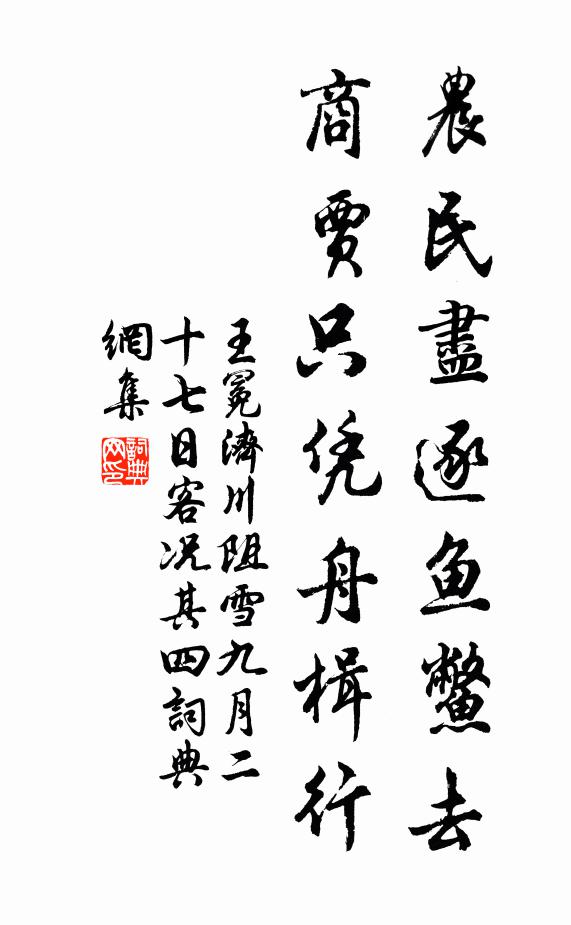 農民盡逐鱼鱉去
商賈只凭舟楫行
王冕濟川阻雪九月二
十七日客况其四詞典
網集
詞典
网印